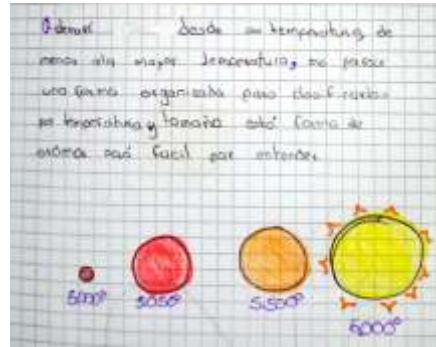 Ordenar desde su temperatura, de
menor ala mayor temperatura, me parece
una forma organizada para clasificarlas
por temperatura y tamaño esta forma de
facil por entender
5000° 5050° 5,500° 6,000°